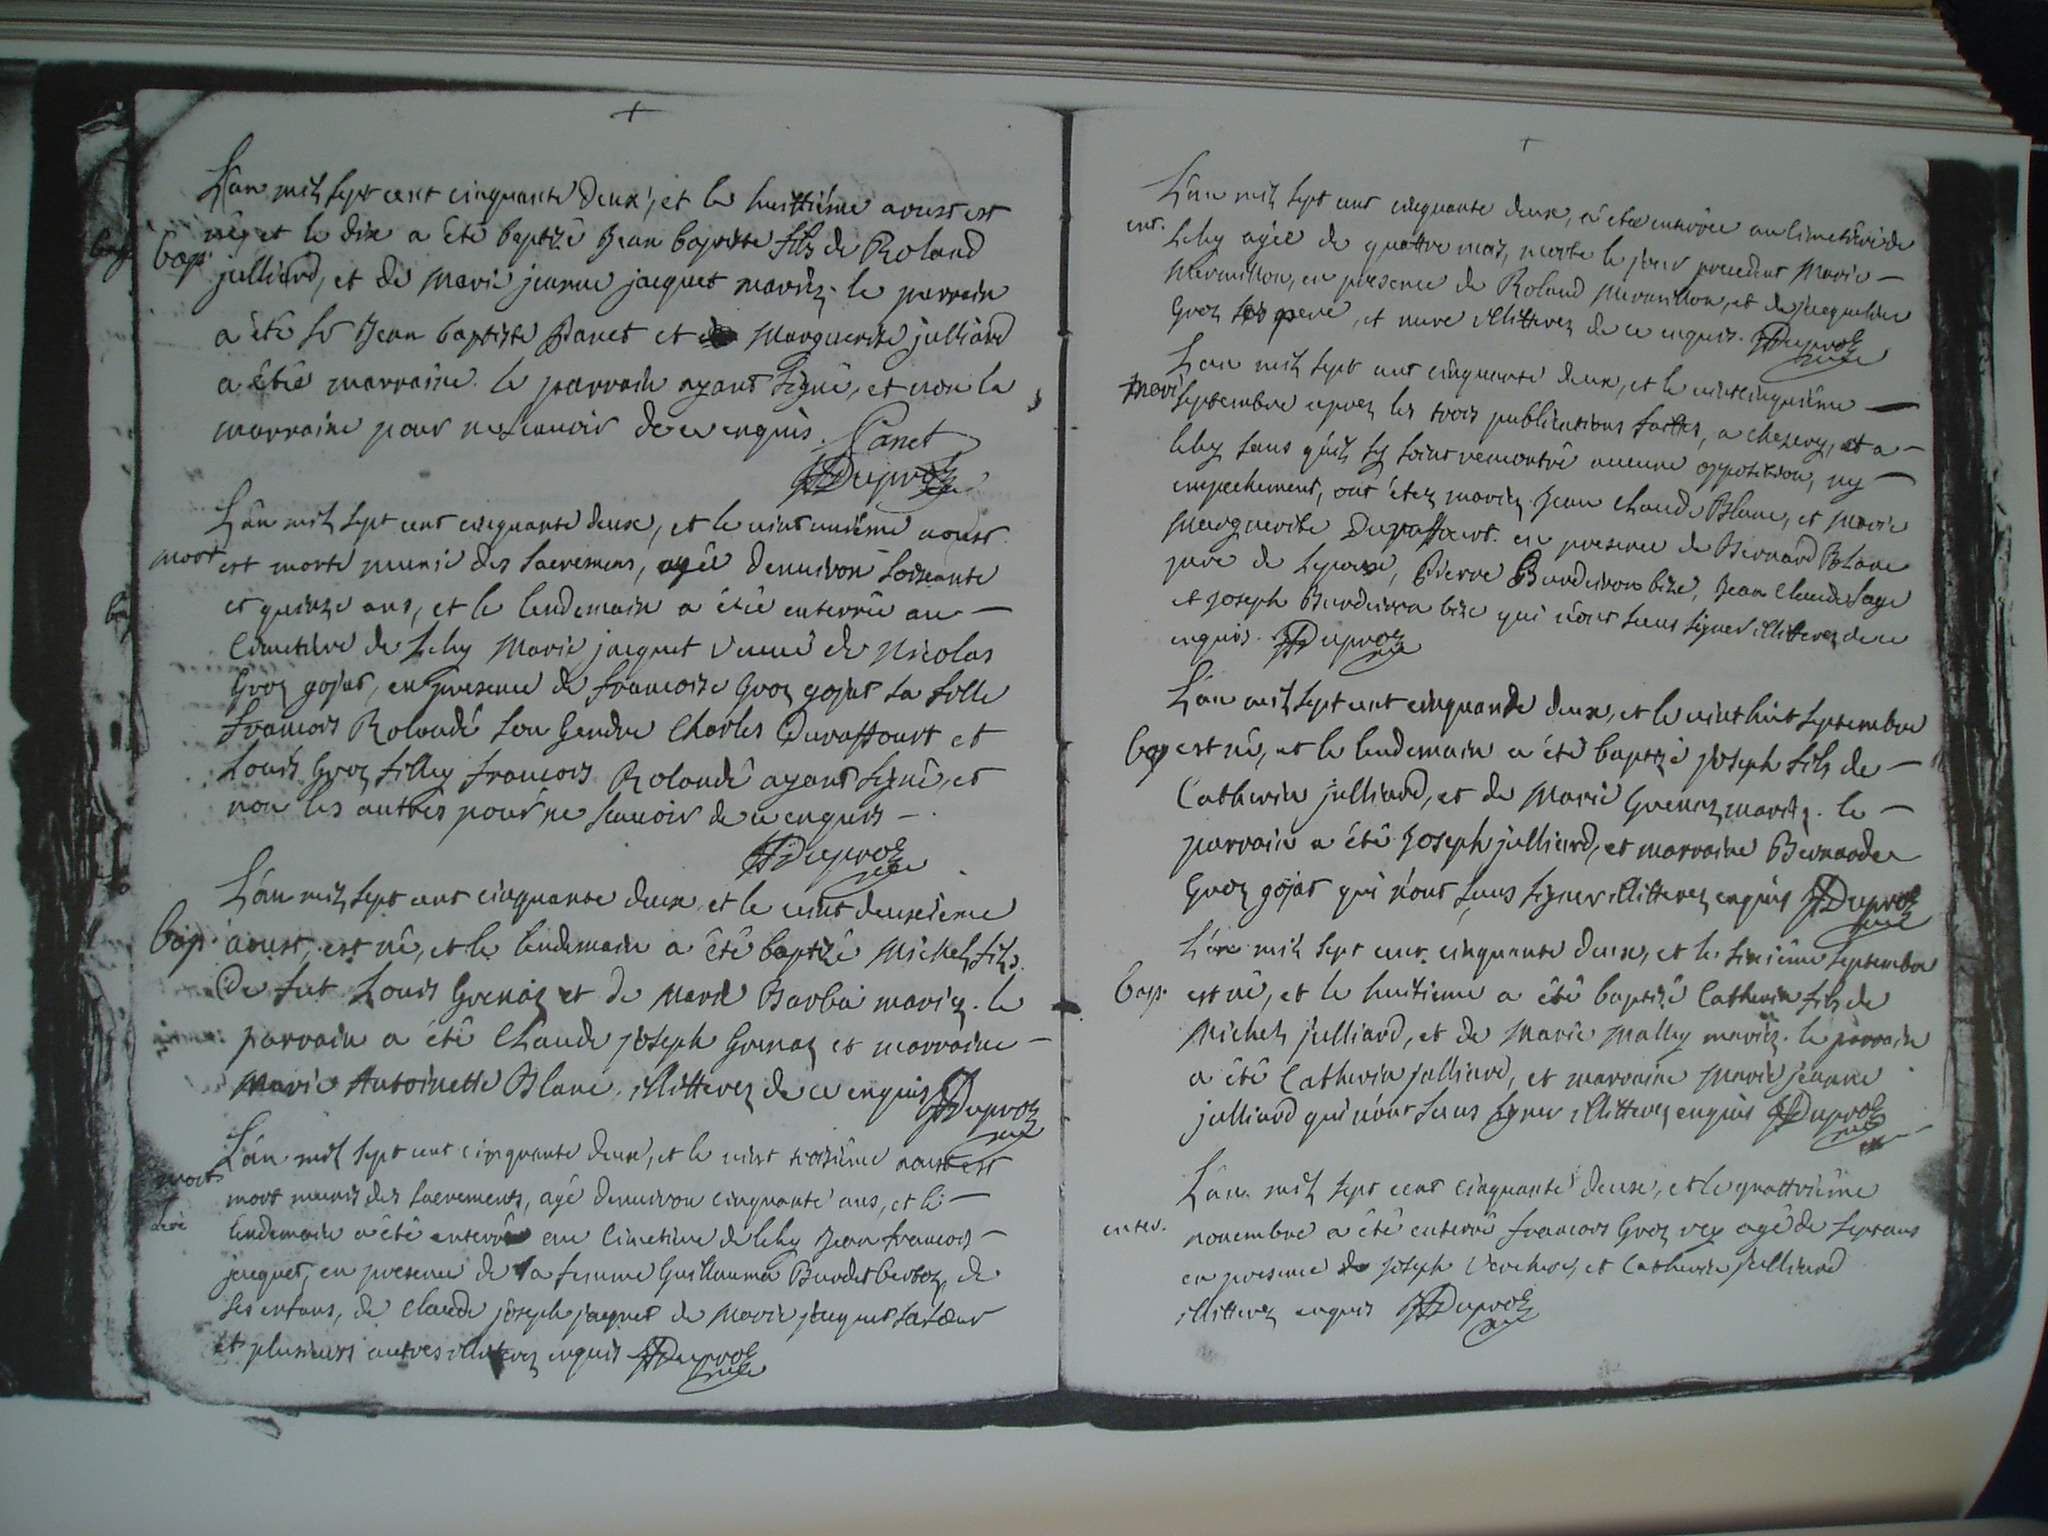 L'an mil sept cent cinquante deux, et le huittiême aoust est
bap. néz et le dix a êté baptizé Jean baptiste fils de Roland
julliard, et de Marie jeanne jacquet mariéz. le parrain
a êté Sr Jean baptiste et Marguerite julliard
a êtée marraine. le parrain ayant signé, et non la
marraine pour ne scauoir de ce enquis.
Duproz
L'an mil sept cent cinquante deux, et le uint uniême aoust
mort est morte munie des sacremens, agée d'enuiron soixante
et quinze ans, et le lendemain a êtée enterrée au
Cimetiere de Lelex Marie jacquet veuue de Nicolas
Groz gojat, en presence de francoise Groz gojat sa fille
francois Rolandé son Gendre Charles Duraffourt et
Louis Groz filley francois Rolandé ayant signé, et
non les autres pour ne scauoir de ce enquis
Duproz
L'an mil sept cent cinquante deux et le uint deuxieme
bap. aoust, est né, et le lendemain a êté baptizé Michel fils
de fut Louis Grenaz et de Marie Barba mariéz. le
parrain a êté Claude joseph Grenaz et marraine
Marie Antoinette Blanc, illitterez de ce enquis Duproz
L'an mil sept cent cinquante deux, et le uint troisiême aoust est
mort mort munis des sacrements, agé d'enuiron cinquante ans, et le
lendemain a êté enterré au Cimetiere de Lelex Jean francois
jacquet, en presence de sa femme Guillauma Burdet de
ses enfans, de Claude joseph jaquet de Marie jacquet sa sœur
et plusieurs autres illiterez enquis Duproz
L'an mil sept cent cinquante deux, a êtée enterrée au Cimetière de
ent. Lelex agée de quattre mois, morte le jour precedent Marie
Marmillon, en presence de Roland Marmillon, et de jacqueline
Groz ses pere, et mere illitterez de ce enquis. Duproz
L'an mil sept cent cinquante deux, et le uintcinquiême
mari septembre aprez les trois publications faittes, a chezery, et a
Lelex sans qu'il sy soint remontré aucune opposition, ny
empechement, ont êtez mariez Jean Claude Blanc, et Marie
Marguerite Duraffourt. en presence de Bernard Blanc
pere de lepoux, Pierre Burdeiron bize, Jean Claude
et joseph Burdeiron bize qui n'ont sceus signer illitterez de ce
enquis. Duproz
L'an mil sept cent cinquante deux, et le uinthuit septembre
bap est né, et le lendemain a êté baptizé joseph fils de
Catherin julliard, et de Marie Grenaz mariéz. le
parrain a êté Joseph julliard, et marraine Bernarde
Groz gojat qui n'ont sceus signer illitterez enquis Duproz
L'an mil sept cent cinquante deux, et le sixiême septembre
bap. est né, et le huitieme a êté baptizé Catherin fils de
Michel julliard, et de Marie Malley mariéz. le parrain
a êté Catherin julliard, et marraine Marie jeanne
julliard qui n'ont sceus signer illitterez enquis Duproz
L'an mil sept cent cinquante deux, et le quattriême
enter. nouembre a êté enterré francois Groz rey agé de sept ans
en presence de joseph et Catherin julliard
illitterez enquis Duproz